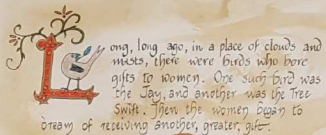 Long, long ago, in a place of clouds and
mists, there were birds who bore
gifts to women. One such bird was
the Jay, and another was the Tree
Swift. Then the women began to
dream of receiving another, greater, gift.